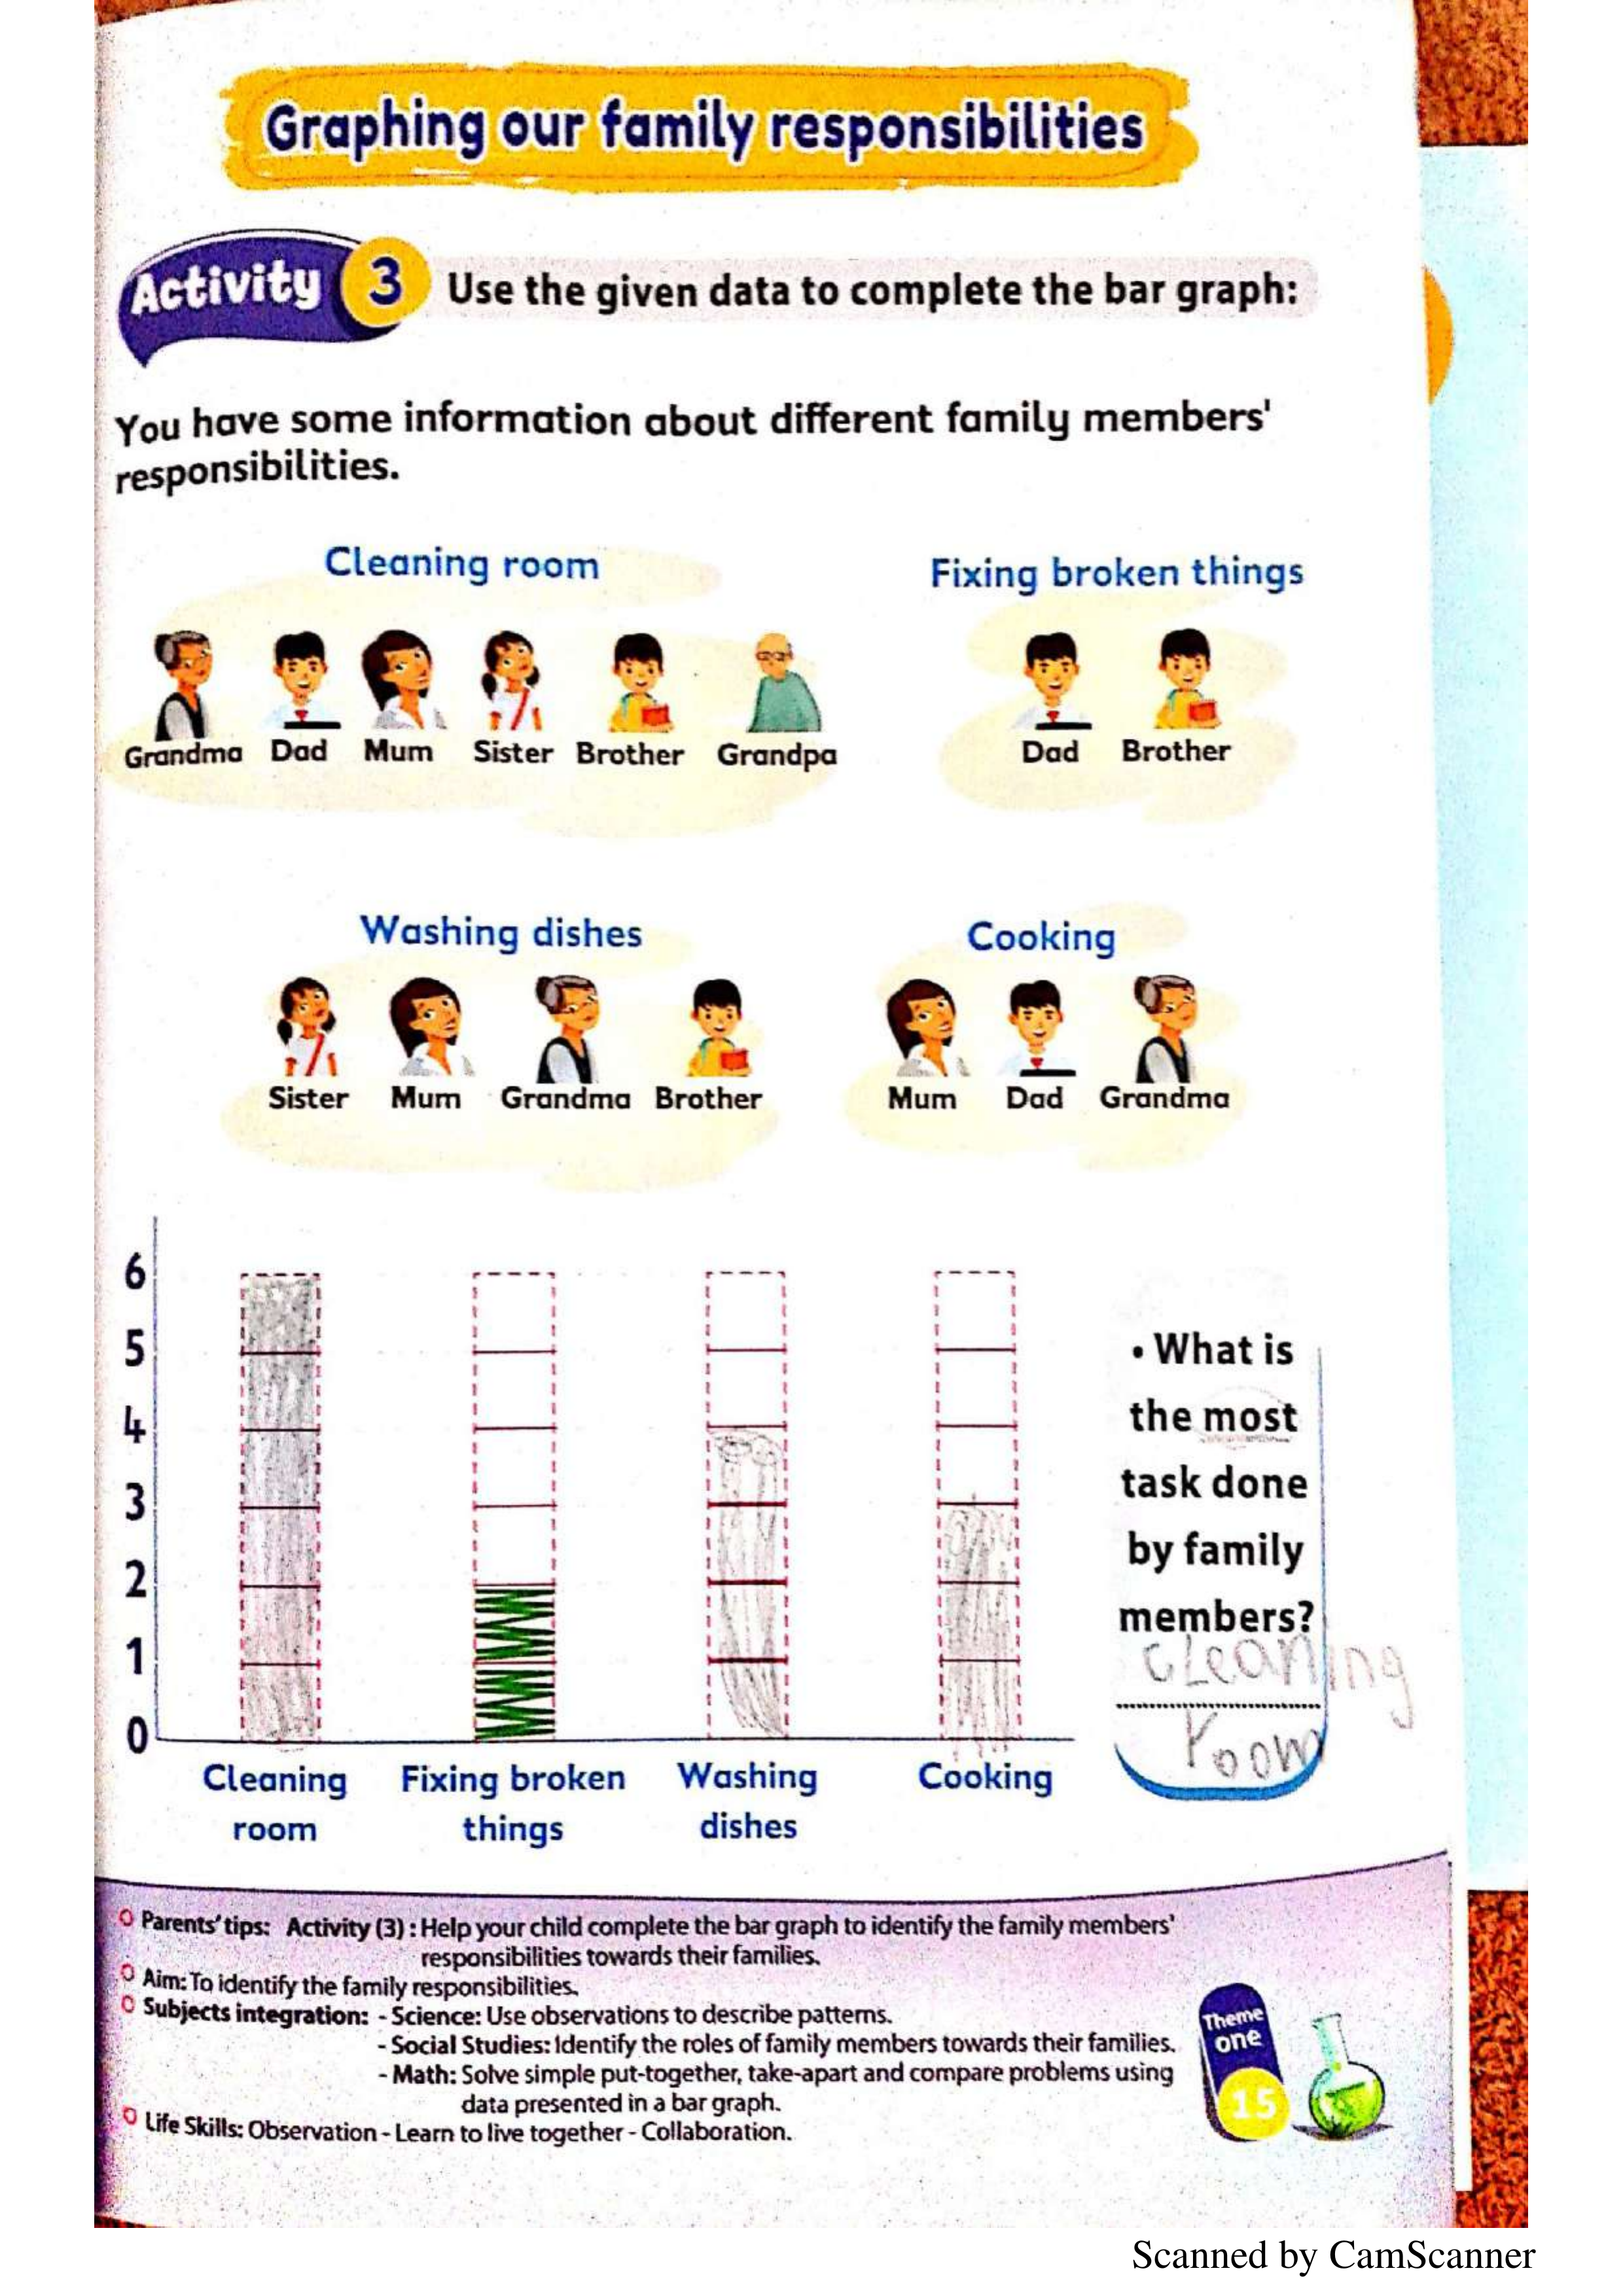 Graphing our family responsibilities
Activity 3 Use the given data to complete the bar graph:
You have some information about different family members'
responsibilities.
Cleaning room
Grandma Dad Mum Sister Brother Grandpa
Fixing broken things
Dad Brother
Washing dishes
Sister Mum Grandma Brother
Cooking
Mum Dad Grandma
6
5
4
3
2
1
0
Cleaning
room
Fixing broken
things
Washing
dishes
Cooking
• What is
the most
task done
by family
members?
cleaning
room
Parents' tips: Activity (3) : Help your child complete the bar graph to identify the family members'
responsibilities towards their families.
Aim: To identify the family responsibilities.
Subjects integration: - Science: Use observations to describe patterns.
- Social Studies: Identify the roles of family members towards their families.
- Math: Solve simple put-together, take-apart and compare problems using
data presented in a bar graph.
Life Skills: Observation - Learn to live together - Collaboration.
Theme
one
15
Scanned by CamScanner